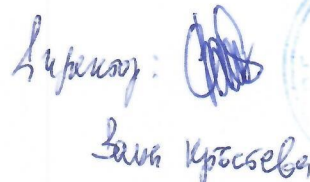 Директор:
Ваня Кръстева